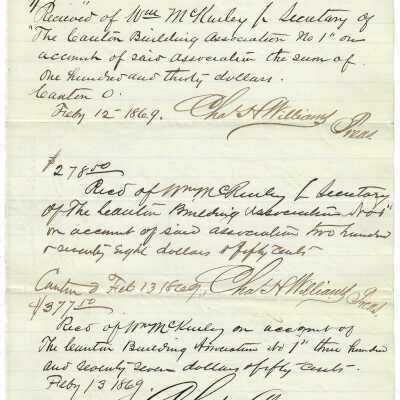 Received of Wm McKinley Jr Secretary of
"The Canton Building Association No 1" on
account of said association the sum of
one hundred and thirty dollars.
Canton O.
Feby 12 - 1869. Chas H Williams
Treas
$278.50
Recd of Wm McKinley Jr Secretary
of The Canton Building Association No 1"
on account of said association two hundred
& seventy eight dollars & fifty cents
Canton O Feb 13 1869. Chas H Williams Treas
$377.50
Recd of Wm McKinley on account of
The Canton Building Association No 1" three hundred
and seventy seven dollars & fifty cents.
Feby 13 1869.